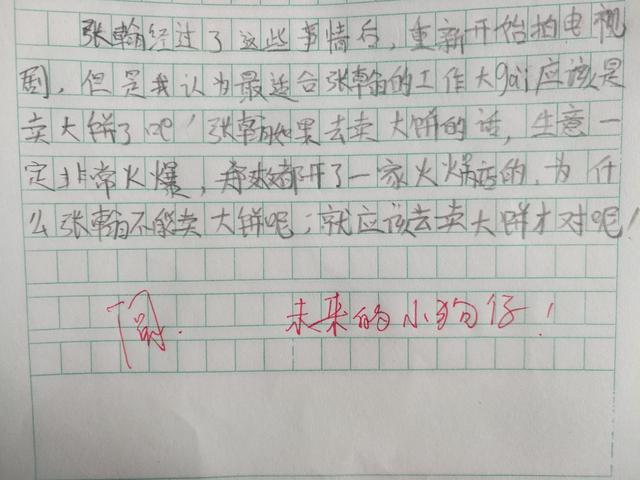 张翰经过了这些事情后,重新开始拍电视
剧,但是我认为最适合张翰的工作大gai应该是
卖大饼了吧!张翰如果去卖大饼的话,生意一
定非常火爆,郑爽都开了一家火锅店的,为什
么张翰不能卖大饼呢;就应该去卖大饼才对呢!
阅. 未来的小狗仔!